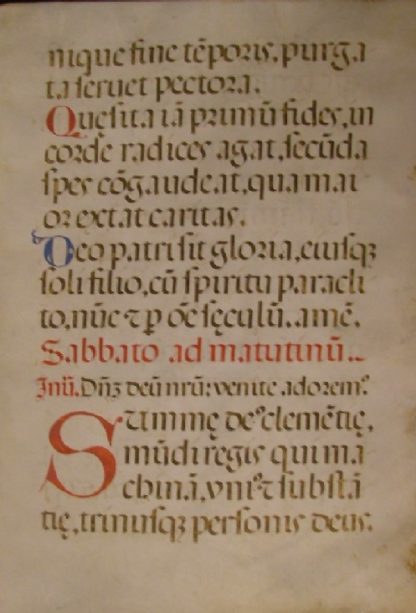 nique fine tēporis, purga
ta seruet pectora.
Quęsita iā primū fides, in
corde radices agat, secūda
spes cōgaudeat, qua mai
or extat caritas.
Deo patri sit gloria, eiusqꝫ
soli filio, cū spiritu paracli
to, nūc ⁊ ꝑ oēs sęculū. amē.
Sabbato ad matutinū.
Inū. Dn̄ꝫ deū nr̄ū: venite adoremꝰ.
Summę deꝰ clemētię,
mūdi regis qui ma
chinā, vnꝰ ⁊ substā
tię, trinusqꝫ personis deus.